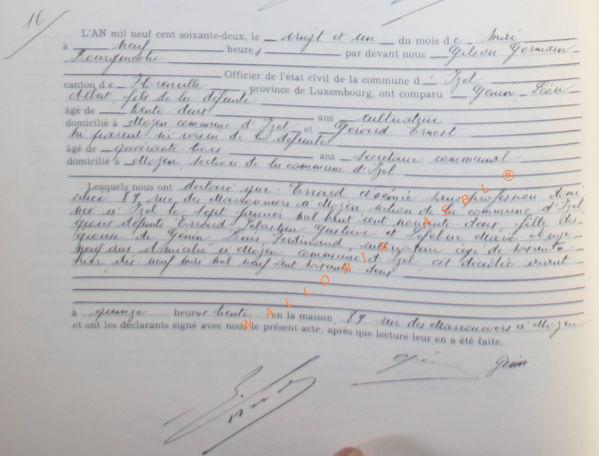 16
L'AN mil neuf cent soixante-deux, le vingt et un du mois de mai
à neuf heures par devant nous Gilson Germain
Bourgmestre
Officier de l'état civil de la commune d' Izel
canton de Florenville province de Luxembourg, ont comparu Génin Léon
Albert, fils de la défunte
âgé de trente deux ans cultivateur
domicilié à Moyen commune d'Izel et Gérard Ernest
ni parent ni voisin de la défunte
âgé de quarante trois ans Secrétaire communal
domicilié à Moyen section de la commune d'Izel
Lesquels nous ont déclaré que Evrard Noémie sans profession, domi-
ciliée 89, rue des Marronniers à Moyen section de la commune d'Izel
née à Izel le sept janvier mil huit cent nonante deux, fille des
époux défunts Evrard Sébastien Gustave et Marie
épouse de Génin Louis Ferdinand, âgé de soixante
neuf ans domicilié à Moyen commune d'Izel est décédée avant-
hier dix neuf mai mil neuf cent soixante deux
à quinze heures trente en la maison 89 rue des Marronniers à Moyen
et ont les déclarants signé avec nous le présent acte, après que lecture leur en a été faite.
WALLONIE ASBL ®
Génin